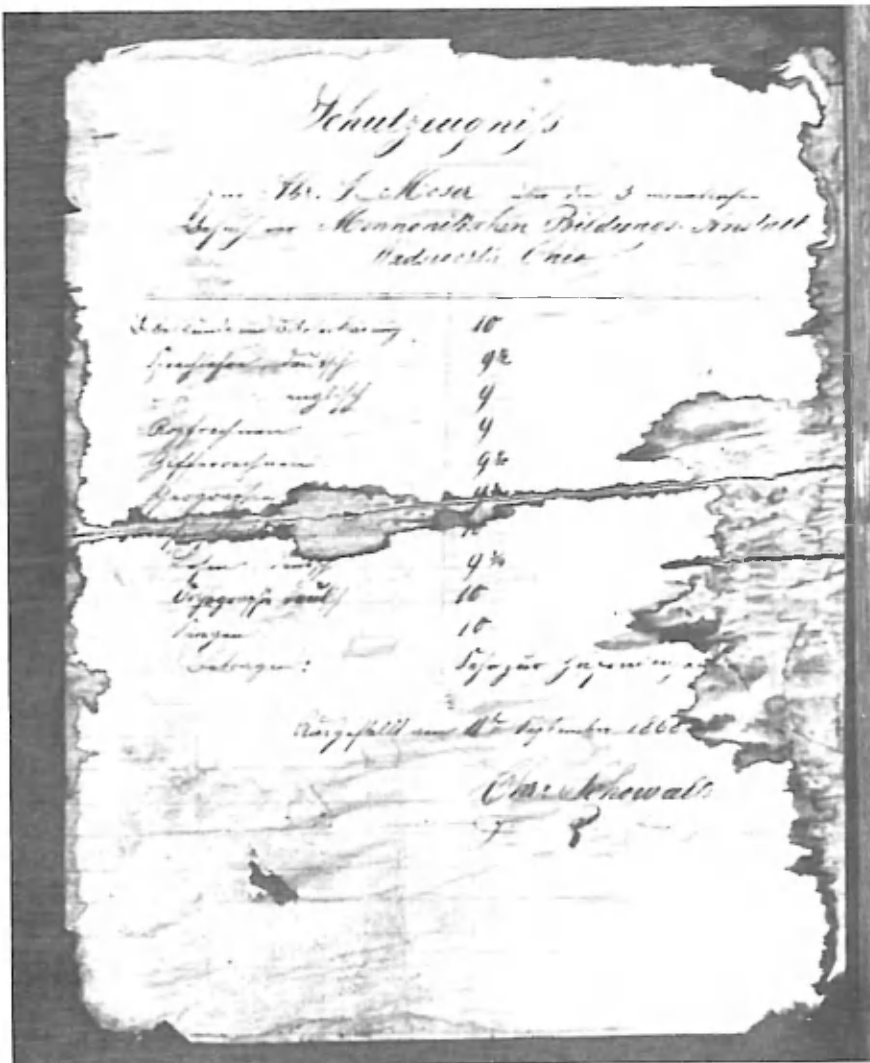 Schulzeugniß
für Abr. J. Moser über den 3 monatlichen
Besuch der Mennonitischen Bildungs-Anstalt
Wadsworth Ohio
10
Sprachlehre deutsch 9½
" englisch 9
Kopfrechnen 9
Zifferrechnen 9½
Geographie
deutsch 9¾
Orthographie deutsch 10
Singen 10
Betragen: Sehr zur
Ausgestellt am September 186
Chr. Schowalter